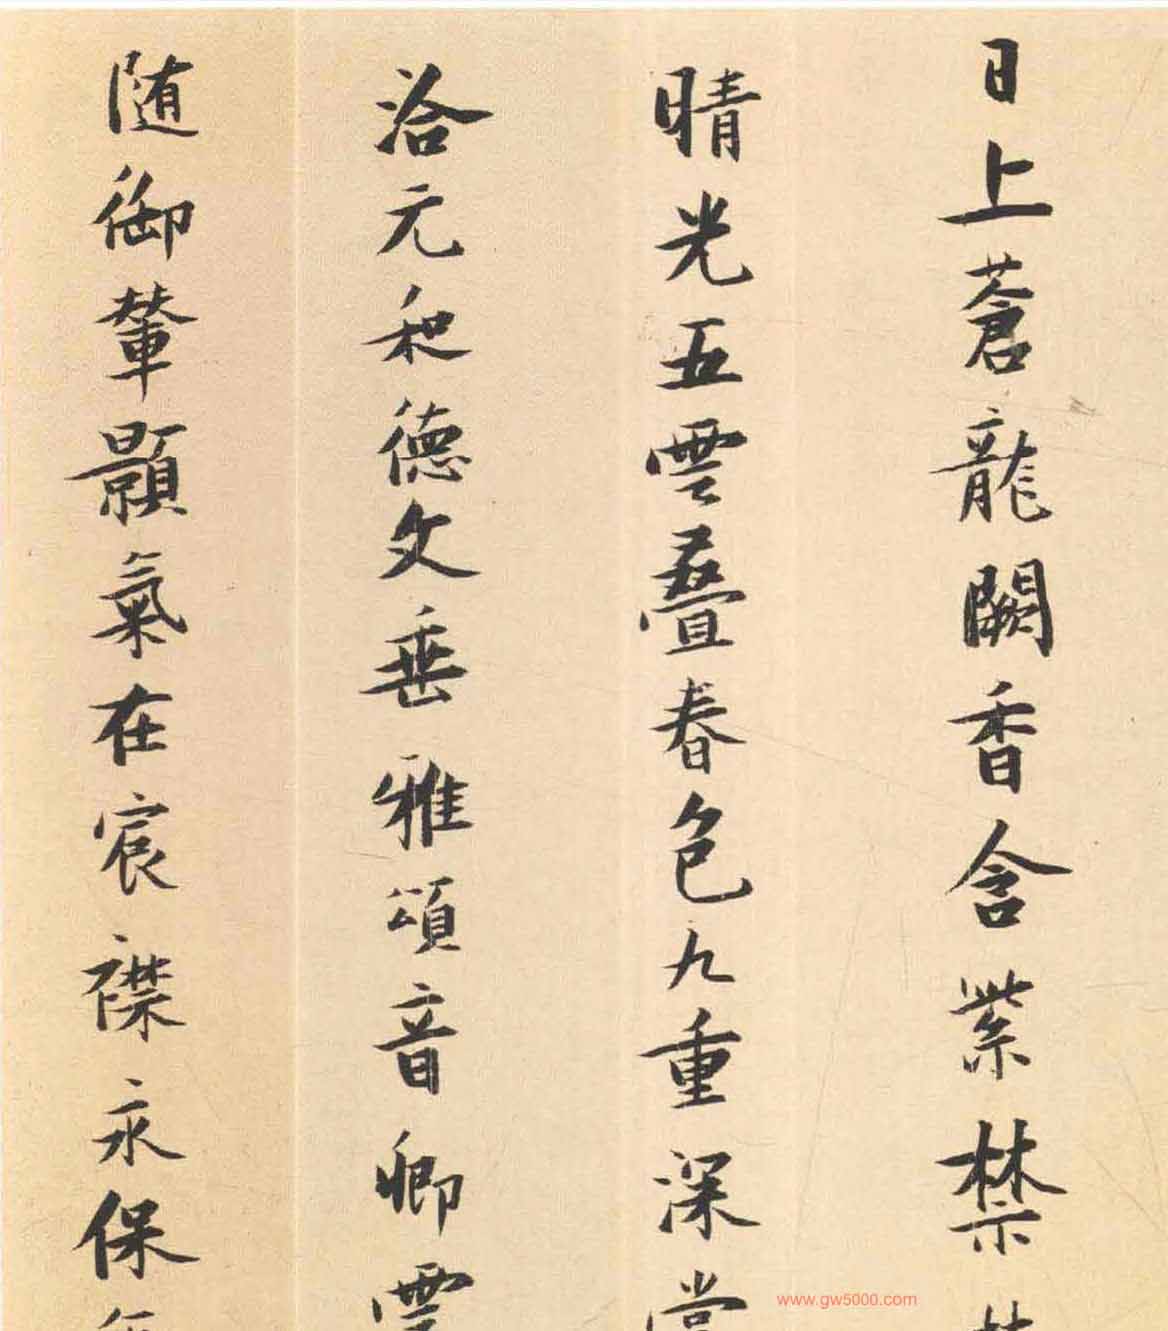 日上蒼龍闕香含紫禁林
晴光五雲叠春色九重深賞
洽元和德文垂雅頌音卿雲
随御輦顥氣在宸襟永保
www.gw5000.com